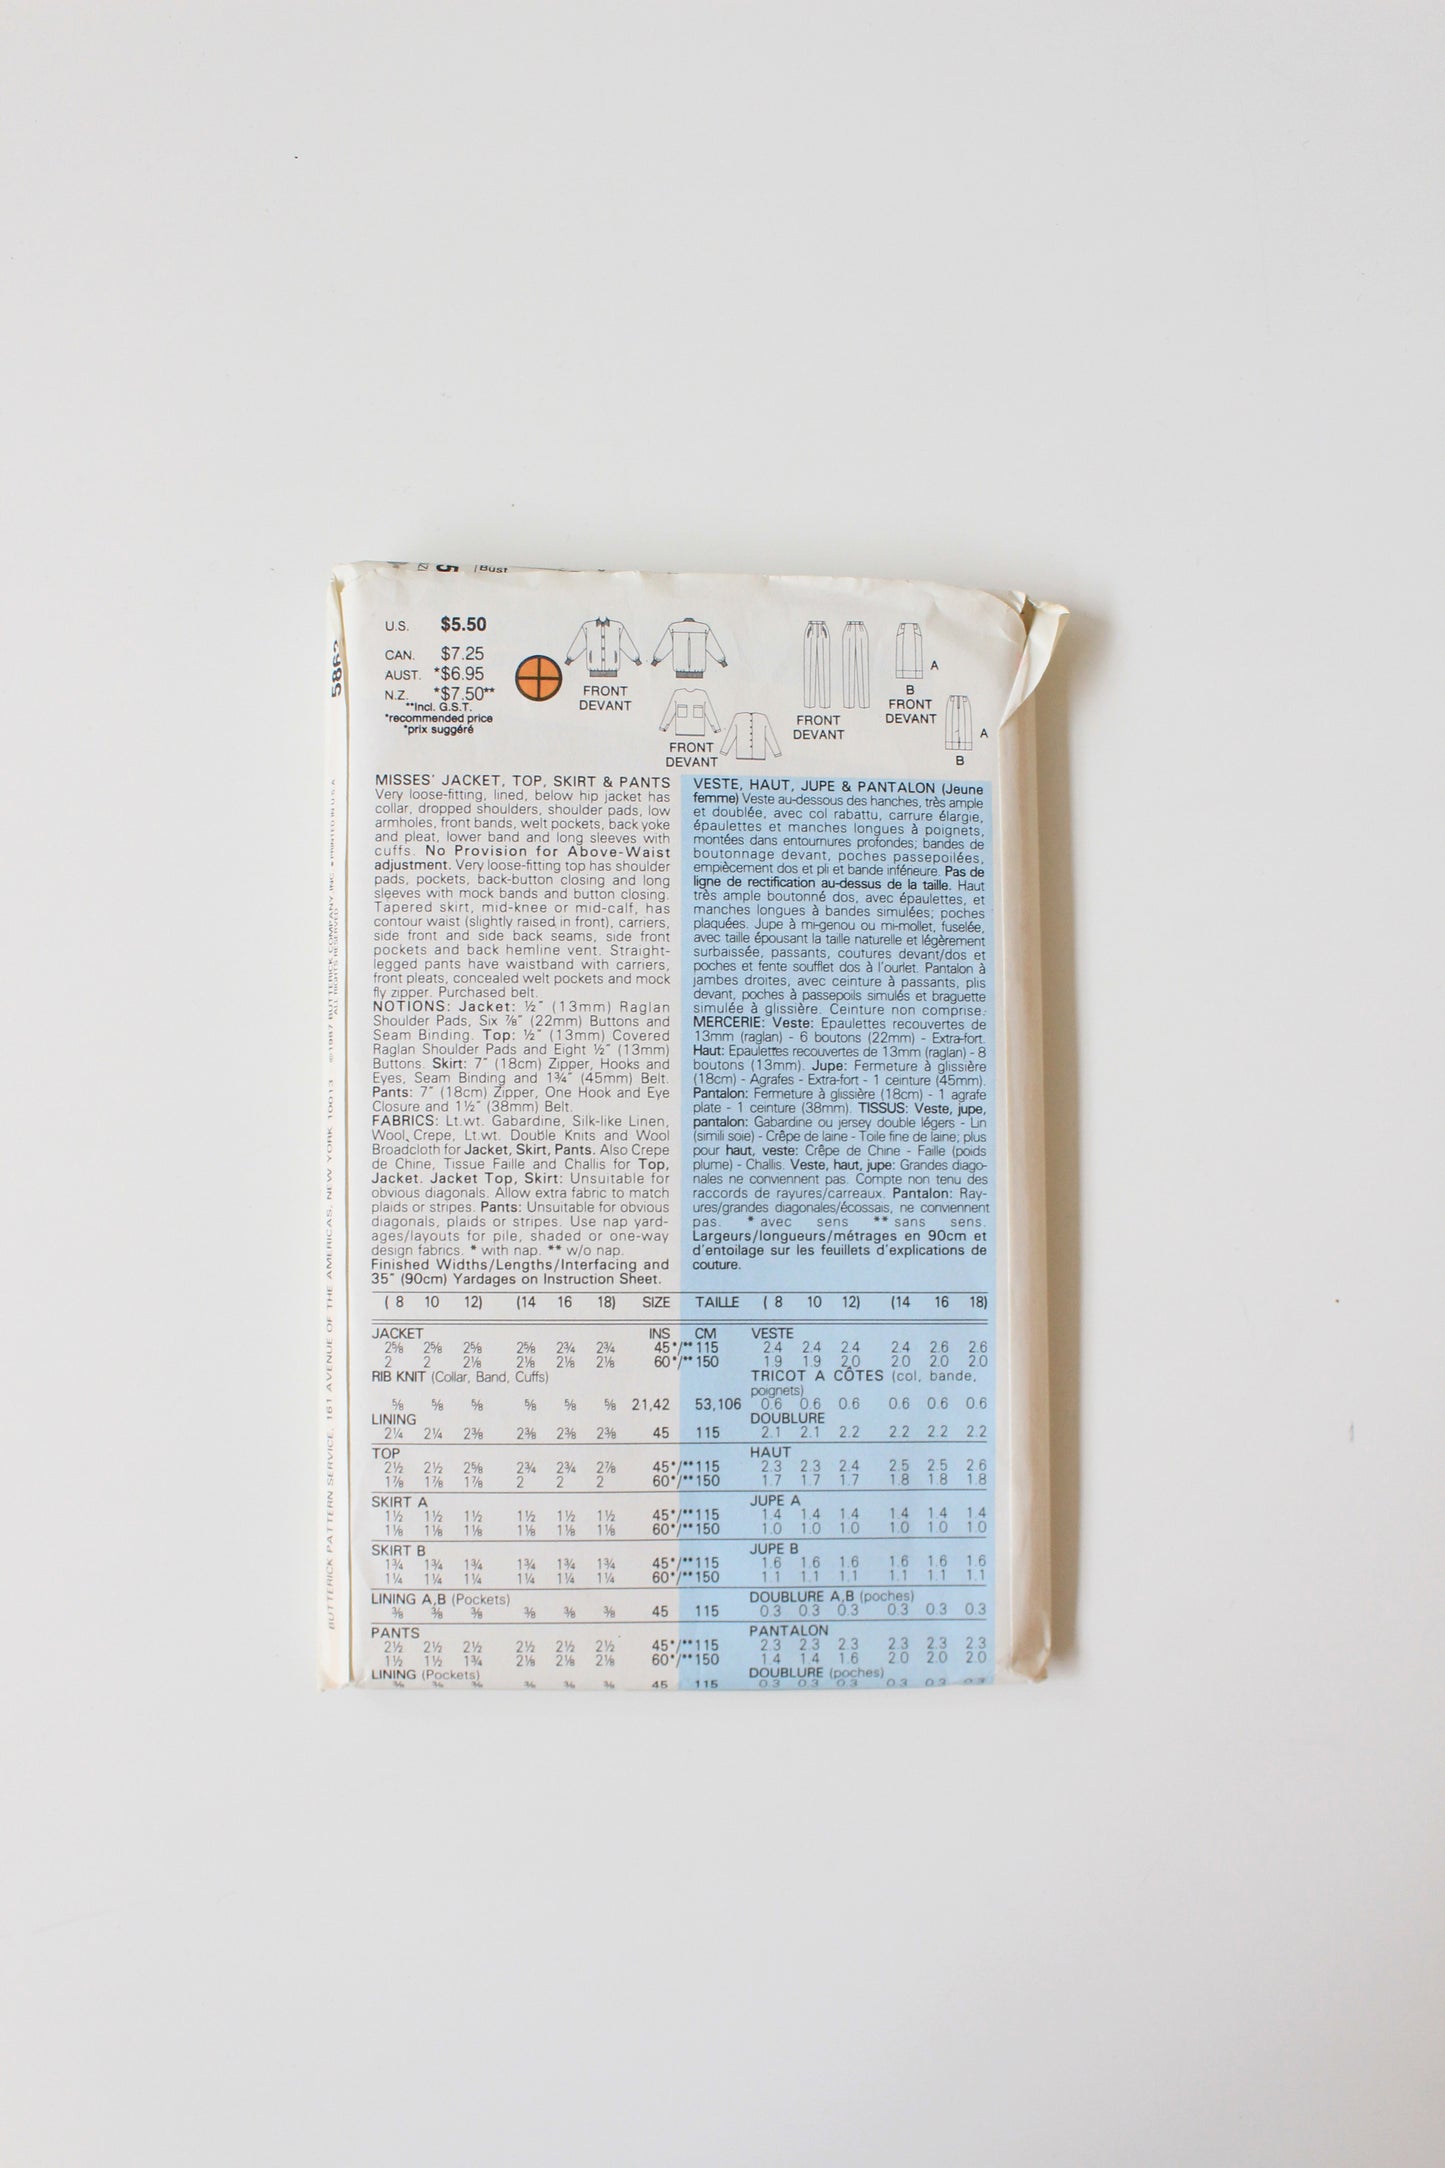 Bust
5862
U.S. $5.50
CAN. $7.25
AUST. *$6.95
N.Z. *$7.50**
**Incl. G.S.T.
*recommended price
*prix suggéré
FRONT
DEVANT
FRONT
DEVANT
FRONT
DEVANT
A
B
FRONT
DEVANT
A
B
MISSES' JACKET, TOP, SKIRT & PANTS
Very loose-fitting, lined, below hip jacket has
collar, dropped shoulders, shoulder pads, low
armholes, front bands, welt pockets, back yoke
and pleat, lower band and long sleeves with
cuffs. No Provision for Above-Waist
adjustment. Very loose-fitting top has shoulder
pads, pockets, back-button closing and long
sleeves with mock bands and button closing.
Tapered skirt, mid-knee or mid-calf, has
contour waist (slightly raised in front), carriers,
side front and side back seams, side front
pockets and back hemline vent. Straight-
legged pants have waistband with carriers,
front pleats, concealed welt pockets and mock
fly zipper. Purchased belt.
NOTIONS: Jacket: ½" (13mm) Raglan
Shoulder Pads, Six ⅞" (22mm) Buttons and
Seam Binding. Top: ½" (13mm) Covered
Raglan Shoulder Pads and Eight ½" (13mm)
Buttons. Skirt: 7" (18cm) Zipper, Hooks and
Eyes, Seam Binding and 1¾" (45mm) Belt.
Pants: 7" (18cm) Zipper, One Hook and Eye
Closure and 1½" (38mm) Belt.
FABRICS: Lt.wt. Gabardine, Silk-like Linen,
Wool Crepe, Lt.wt. Double Knits and Wool
Broadcloth for Jacket, Skirt, Pants. Also Crepe
de Chine, Tissue Faille and Challis for Top,
Jacket. Jacket Top, Skirt: Unsuitable for
obvious diagonals. Allow extra fabric to match
plaids or stripes. Pants: Unsuitable for obvious
diagonals, plaids or stripes. Use nap yard-
ages/layouts for pile, shaded or one-way
design fabrics. * with nap. ** w/o nap.
Finished Widths/Lengths/Interfacing and
35" (90cm) Yardages on Instruction Sheet.
VESTE, HAUT, JUPE & PANTALON (Jeune
femme) Veste au-dessous des hanches, très ample
et doublée, avec col rabattu, carrure élargie,
épaulettes et manches longues à poignets,
montées dans entournures profondes; bandes de
boutonnage devant, poches passepoilées,
empiècement dos et pli et bande inféneure. Pas de
ligne de rectification au-dessus de la taille. Haut
très ample boutonné dos, avec épaulettes, et
manches longues à bandes simulées; poches
plaquées. Jupe à mi-genou ou mi-mollet, fuselée,
avec taille épousant la taille naturelle et légèrement
surbaissée, passants, coutures devant/dos et
poches et fente soufflet dos à l'ourlet. Pantalon à
jambes droites, avec ceinture à passants, plis
devant, poches à passepoils simulés et braguette
simulée à glissière. Ceinture non comprise.
MERCERIE: Veste: Epaulettes recouvertes de
13mm (raglan) - 6 boutons (22mm) - Extra-fort.
Haut: Epaulettes recouvertes de 13mm (raglan) - 8
boutons (13mm). Jupe: Fermeture à glissière
(18cm) - Agrafes - Extra-fort - 1 ceinture (45mm).
Pantalon: Fermeture à glissière (18cm) - 1 agrafe
plate - 1 ceinture (38mm). TISSUS: Veste, jupe,
pantalon: Gabardine ou jersey double légers - Lin
(simili soie) - Crêpe de laine - Toile fine de laine; plus
pour haut, veste: Crêpe de Chine - Faille (poids
plume) - Challis. Veste, haut, jupe: Grandes diago-
nales ne conviennent pas. Compte non tenu des
raccords de rayures/carreaux. Pantalon: Ray-
ures/grandes diagonales/écossais, ne conviennent
pas. * avec sens ** sans sens.
Largeurs/longueurs/métrages en 90cm et
d'entoilage sur les feuillets d'explications de
couture.
( 8 10 12) (14 16 18) SIZE TAILLE ( 8 10 12) (14 16 18)
JACKET INS CM VESTE
2⅝ 2⅝ 2⅝ 2⅝ 2¾ 2¾ 45*/**115 2.4 2.4 2.4 2.4 2.6 2.6
2 2 2⅛ 2⅛ 2⅛ 2⅛ 60*/**150 1.9 1.9 2.0 2.0 2.0 2.0
RIB KNIT (Collar, Band, Cuffs) TRICOT A CÔTES (col, bande,
poignets)
⅝ ⅝ ⅝ ⅝ ⅝ ⅝ 21,42 53,106 0.6 0.6 0.6 0.6 0.6 0.6
LINING DOUBLURE
2¼ 2¼ 2⅜ 2⅜ 2⅜ 2⅜ 45 115 2.1 2.1 2.2 2.2 2.2 2.2
TOP HAUT
2½ 2½ 2⅝ 2¾ 2¾ 2⅞ 45*/**115 2.3 2.3 2.4 2.5 2.5 2.6
1⅞ 1⅞ 1⅞ 2 2 2 60*/**150 1.7 1.7 1.7 1.8 1.8 1.8
SKIRT A JUPE A
1½ 1½ 1½ 1½ 1½ 1½ 45*/**115 1.4 1.4 1.4 1.4 1.4 1.4
1⅛ 1⅛ 1⅛ 1⅛ 1⅛ 1⅛ 60*/**150 1.0 1.0 1.0 1.0 1.0 1.0
SKIRT B JUPE B
1¾ 1¾ 1¾ 1¾ 1¾ 1¾ 45*/**115 1.6 1.6 1.6 1.6 1.6 1.6
1¼ 1¼ 1¼ 1¼ 1¼ 1¼ 60*/**150 1.1 1.1 1.1 1.1 1.1 1.1
LINING A,B (Pockets) DOUBLURE A,B (poches)
⅜ ⅜ ⅜ ⅜ ⅜ ⅜ 45 115 0.3 0.3 0.3 0.3 0.3 0.3
PANTS PANTALON
2½ 2½ 2½ 2½ 2½ 2½ 45*/**115 2.3 2.3 2.3 2.3 2.3 2.3
1½ 1½ 1¾ 2⅛ 2⅛ 2⅛ 60*/**150 1.4 1.4 1.6 2.0 2.0 2.0
LINING (Pockets) DOUBLURE (poches)
⅜ ⅜ ⅜ ⅜ ⅜ ⅜ 45 115 0.3 0.3 0.3 0.3 0.3 0.3
BUTTERICK PATTERN SERVICE, 161 AVENUE OF THE AMERICAS, NEW YORK 10013 ©1987 BUTTERICK COMPANY, INC. • PRINTED IN U.S.A.
ALL RIGHTS RESERVED